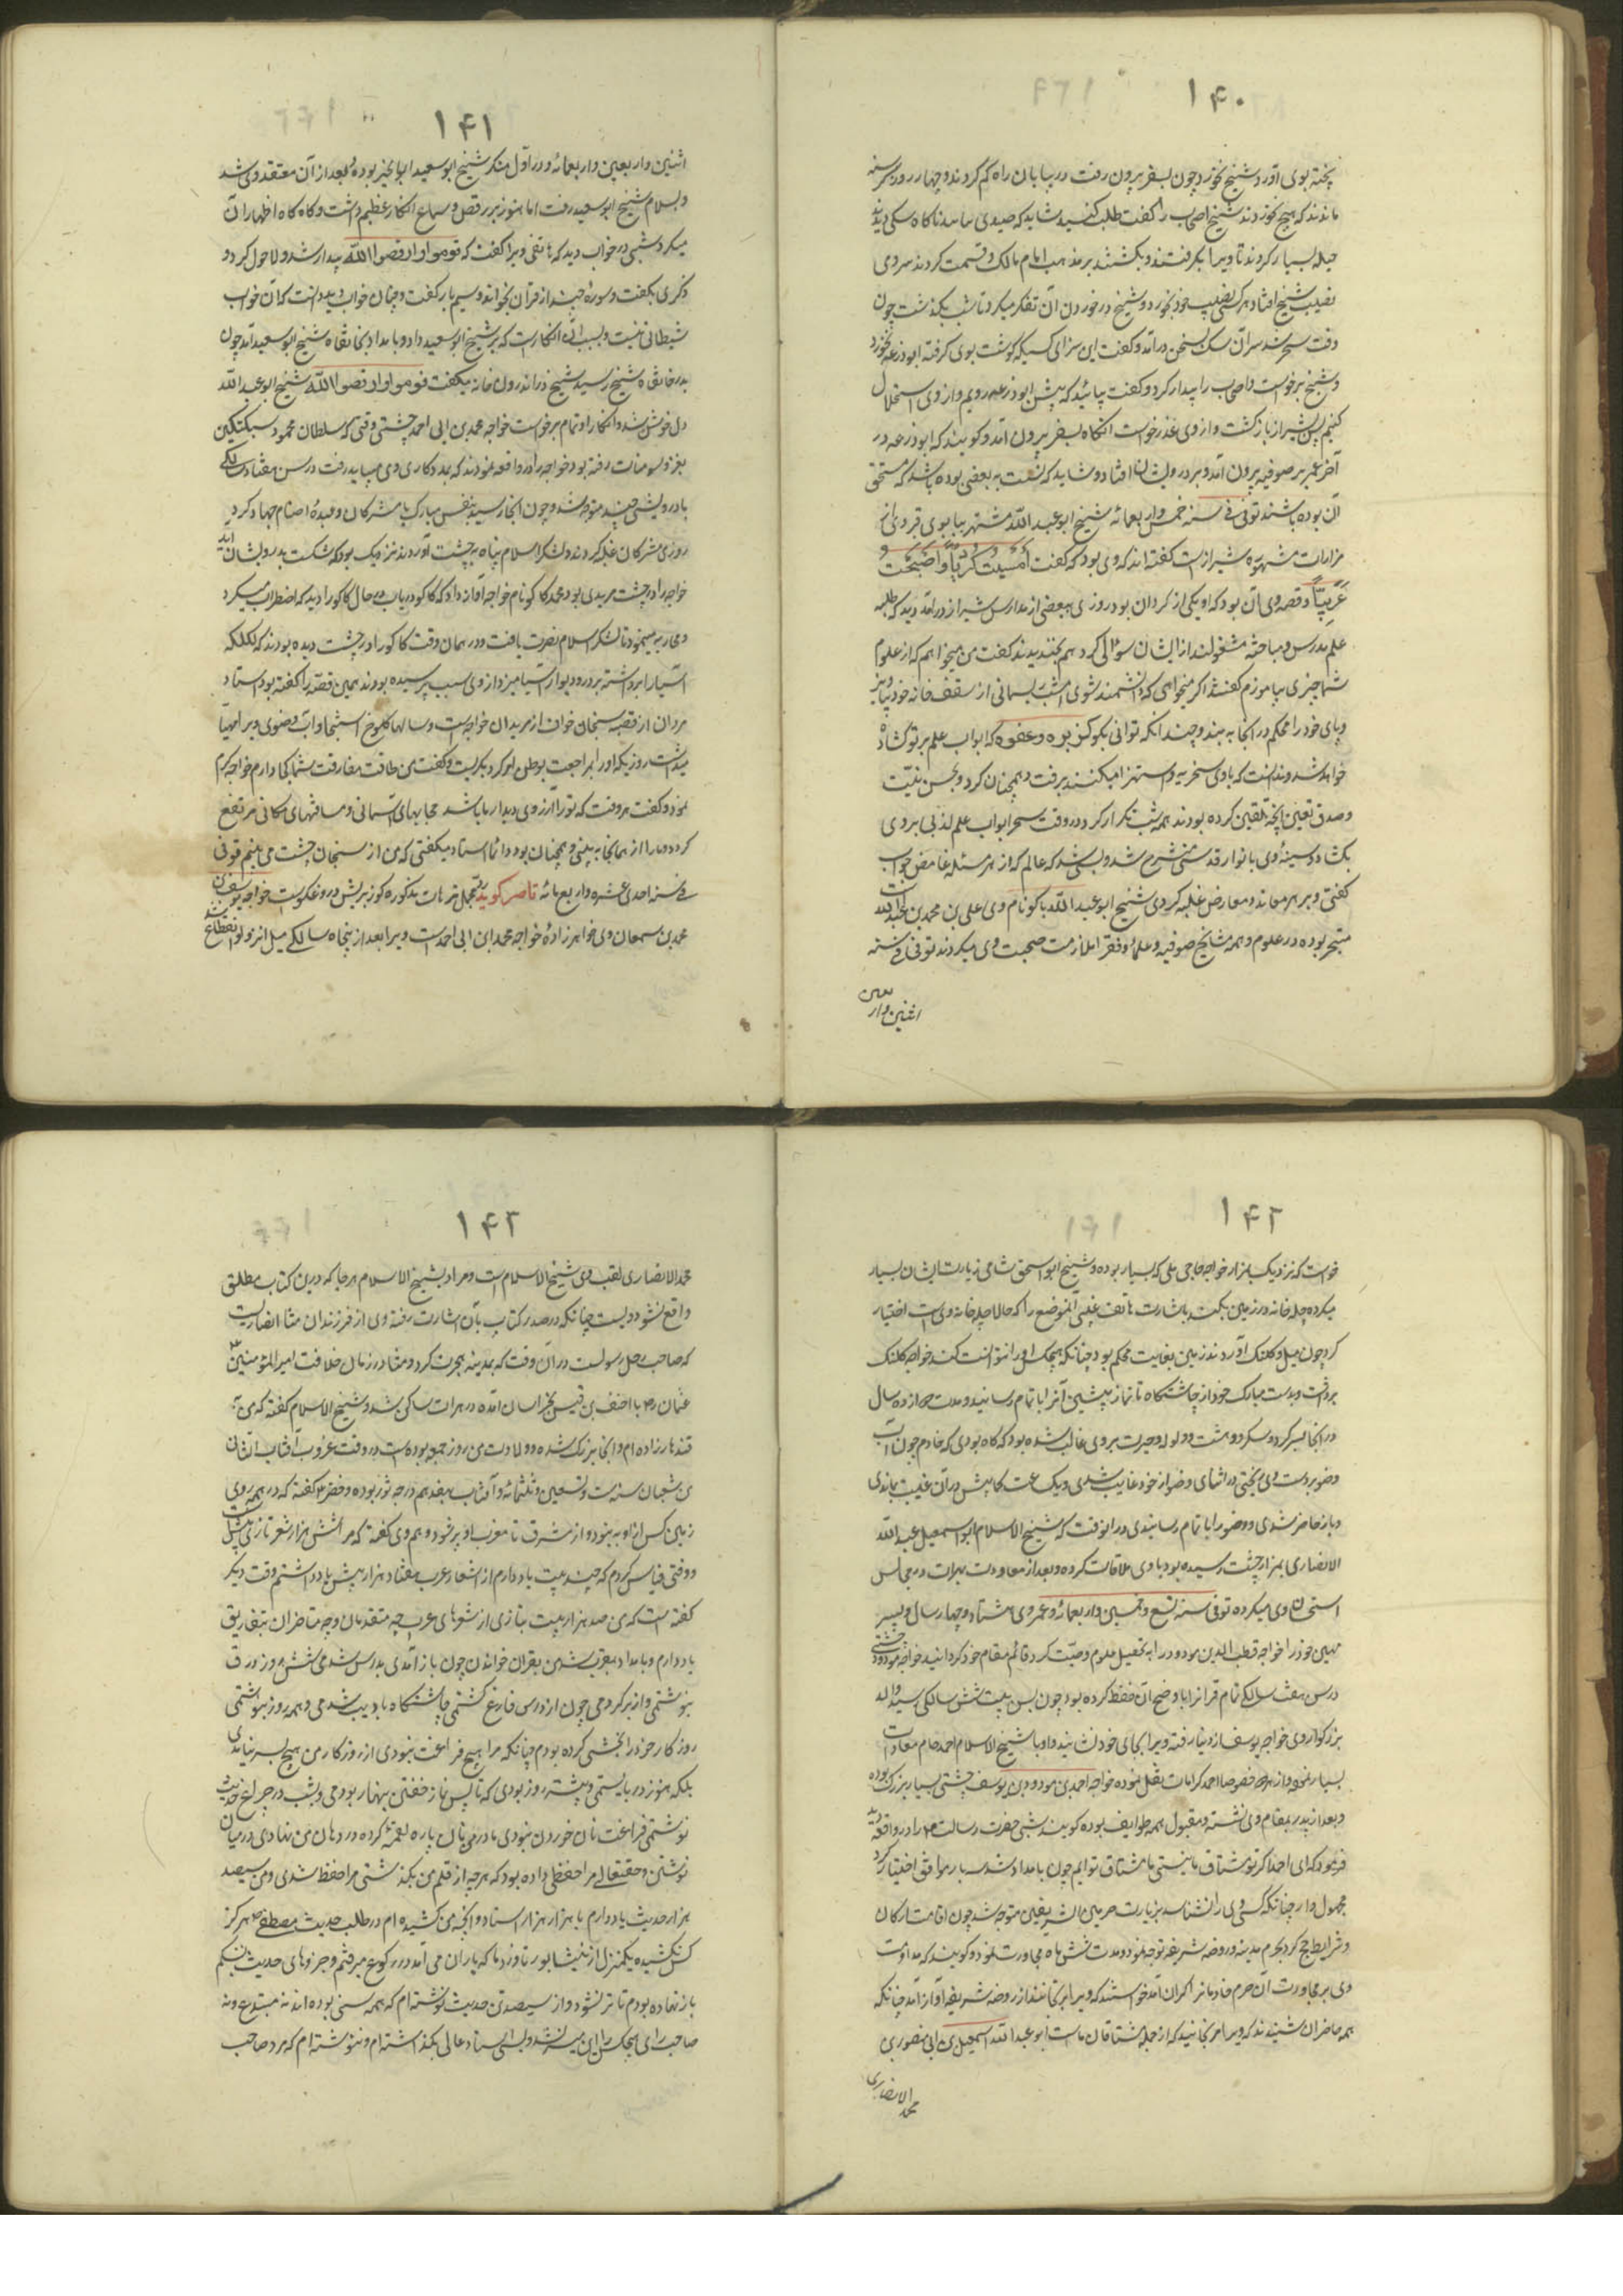 ۱۴۰
پخته بوی آورد شیخ نخورد چون بسفر بیرون رفت در بیابان راه گم کردند و چهار روز گرسنه
ماندند که هیچ نخوردند شیخ اصحاب را گفت طلب کنید شاید که صیدی بیابید ناگاه سگی دیدند
حیله بسیار کردند تا ویرا بگرفتند و بکشتند بر مذهب امام مالک و قسمت کردند سر وی
نصیب شیخ افتاد هر کس نصیب خود بخورد و شیخ در خوردن آن تفکر میکرد تا شب بگذشت چون
وقت سحر شد سر آن سگ بسخن درآمد و گفت این سزای کسیکه گوشت بوی گرفته ابوذرعه نخورد
شیخ برخواست و اصحاب را بیدار کرد و گفت بیائید که پیش ابوذرعه رویم و از وی استحلال
کنیم پس بشیراز بازگشت و از وی عذر خواست آنگاه بسفر بیرون آمد و گویند که ابوذرعه در
آخر عمر بر صوفیه بیرون آمد و بر درویشان افتاد و شاید که نسبت به بعضی بوده باشد که مستحق
آن بوده باشند توفی فی سنه خمس واربعمائه شیخ ابوعبدالله مشتهر ببابوی قبر وی از
مزارات مشهوره شیراز است گفته اند که وی بود که گفت أَمْسَیْتُ کُرْدِیّاً وَ اَصْبَحْتُ
عَرَبِیّاً و قصه وی آن بود که او یکی از کردان بود روزی ببعضی از مدارس شیراز درآمد دید که طلبه
علم بدرس و مباحثه مشغولند از ایشان سؤالی کرد همه بخندیدند گفت من میخواهم که از علوم
شما چیزی بیاموزم گفتند اگر میخواهی که دانشمند شوی امشب ریسمانی از سقف خانه خود بیاویز
و پای خود را محکم در آنجا به بند و چندانکه توانی بگو کزبره و عصفره که ابواب علم بر تو گشاده
خواهد شد و ندانست که با وی سخریه و استهزا میکنند برفت و همچنان کرد و بحسن نیّت
و صدق تعیین آنچه تلقین کرده بودند همه شب تکرار کرد در وقت سحر ابواب علم لدنی بر وی
بگشاد و سینهٔ وی بانوار قدسی منشرح شد و پس شد که عالم که از هر مسئله غامض جواب
گفتی و بر هر معاند و معارض غلبه کردی شیخ ابوعبدالله باکو نام وی علی بن محمد بن عبدالله است
متبحر بوده در علوم و همه مشایخ صوفیه و علما و فقرا ملازمت صحبت وی میکردند توفی فی سنه
اثنین وار
بعین
۱۴۱
اثنین واربعین واربعمائه و در اوّل منکر شیخ ابوسعید ابوالخیر بوده و بعد از آن معتقد وی شد
و بسلام شیخ ابوسعید رفت اما هنوز بر رقص و سماع انکار عظیم داشت و گاه گاه اظهار آن
میکرد شبی در خواب دید که هاتفی ویرا گفت که قوموا و ارقصوا لله بیدار شد و لاحول کرد و
ذکری بگفت و سورهٔ چند از قرآن بخواند و سیم بار گفت و چنان خواب دید دانست که آن خواب
شیطانی نیست و بسبب آن انکار است که بر شیخ ابوسعید دارد و بامداد بخانقاه شیخ ابوسعید آمد چون
بدر خانقاه شیخ رسید شیخ در اندرون خانه میگفت قوموا و ارقصوا لله شیخ ابوعبدالله
دل خوش شد و انکار او تمام برخواست خواجه محمد بن ابی احمد چشتی وقتی که سلطان محمود سبکتکین
بغزو سومنات رفته بود خواجه را در واقعه نمودند که بمددکاری وی میباید رفت در سن هفتاد سالگی
با درویشی چند متوجه شد و چون آنجا رسید بنفس مبارک با مشرکان و عبدهٔ اصنام جهاد کرد
روزی مشرکان غلبه کردند و لشکر اسلام پناه به چشت آوردند نزدیک بود که شکست بدرویشان آید
خواجه را در چشت مریدی بود محمد کاکو نام خواجه آواز داد که کاکو دریاب در حال کاکو را دید که اضطراب میکرد
و محاربه مینمود تا لشکر اسلام نصرت یافت و در همان وقت کاکو را در چشت دیده بودند که لکلکه
آسیا را برداشته بر در و دیوار آسیا میزد از وی سبب پرسیده بودند همین قصّه را گفته بود استاد
مردان از قصبه سنجان خوان از مریدان خواجه است و سالها کلوخ استنجا و آب وضوی ویرا مهیّا
میداشت روزیکه او را مراجعت بوطن امر کرد بگریست و گفت من طاقت مفارقت شما کجا دارم خواجه کرم
نمود و گفت هر وقت که تو را آرزوی دیدار ما باشد حجابهای آسمانی و مسافتهای مکانی مرتفع
گردد و ما را از همانجا به بینی و همچنان بود دائما استاد میگفتی که من از سنجان چشت می بینم توفی
فی سنه احدی عشره واربعمائه ناصر گوید رد مجمل ترهات مذکوره گوز بریش دروغگوست خواجه یوسف بن
محمد بن سمعان وی خواهرزادهٔ خواجه محمد ابن ابی احمد است ویرا بعد از پنجاه سالگی میل انزوا و انقطاع شد
۱۴۲
خواست که نزدیک بمزار خواجه حاجی ملی که بسیار بوده و شیخ ابواسحق شامی زیارت ایشان بسیار
میکرده چله خانه در زمین بکند باشارت هاتف غیبی آنموضع را که حالا چله خانه وی است اختیار
کرد چون بیل و کلنک آوردند زمین بغایت محکم بود چنانکه هیچکس آنرا نتوانست کند خواجه کلنک
برداشت و بدست مبارک خود از چاشتگاه تا نماز پیشین آنرا باتمام رسانید و مدت دوازده سال
در آنجا بسر کرد و سکر و دهشت و وله و حیرت بر وی غالب شده بود که گاه بودی که خادم چون آب
وضو بر دست وی ریختی در اثنای وضو از خود غایب شدی و یک ساعت کمابیش در آن غیبت بماندی
و باز حاضر شدی و وضو را باتمام رسانیدی در آنوقت که شیخ الاسلام ابواسمعیل عبدالله
الانصاری بمزار چشت رسیده بود با وی ملاقات کرده و بعد از معاودت بهرات در مجالس
استحسان وی میکرده توفی سنه تسع وخمسین واربعمائه و عمر وی هشتاد و چهار سال و پسر
مهین خود را خواجه قطب الدین مودود را به تحصیل علوم وصیّت کرد قائم مقام خود گردانید خواجه مودود چشتی
در سن هفت سالگی تمام قرآنرا باوضح آن حفظ کرده بود چون بسن بیست شش سالگی رسید والد
بزرگوار وی خواجه یوسف از دنیا رفته ویرا بجای خود نشانید و او با شیخ الاسلام احمد جام مقاومات
بسیار نموده و از هر دو خصوصا احمد کرامات نقل نموده خواجه احمد بن مودود بن یوسف چشتی بسیار بزرک بوده
و بعد از پدر بمقام وی نشسته و مقبول همه طوایف بوده گویند شبی حضرت رسالت ص را در واقعه دید
فرمود که ای احمد اگر تو مشتاق ما نیستی ما مشتاق توایم چون بامداد شد سه یار موافق اختیار کرد
مجهول وار چنانکه کسی وی را نشناسد بزیارت حرمین الشریفین متوجه شد چون اقامت ارکان
و شرایط حج کرد بحرم مدینه و روضه شریفه توجه نمود و مدت شش ماه مجاورت نمود و گویند که مداومت
وی بر مجاورت آن حرم خادمانرا گران آمد خواستند که ویرا برنجانند از روضه شریفه آواز آمد چنانکه
همه حاضران شنیدند که ویرا مرنجانید که از جمله مشتاقان ماست ابوعبدالله اسمعیل بن ابی منصور بن
محمد الانصاری
۱۴۳
محمد الانصاری لقب وی شیخ الاسلام است و مراد بشیخ الاسلام هر جا که در این کتاب مطلق
واقع شود ویست چنانکه در صدر کتاب بآن اشارت رفته وی از فرزندان مت انصاریست
که صاحب رحل رسولست در آن وقت که بمدینه هجرت کرد و مت در زمان خلافت امیر المؤمنین
عثمان رض با احنف بن قیس بخراسان آمده در هرات ساکن شد و شیخ الاسلام گفته که من به
قندهار زاده ام و آنجا بزرک شده و ولادت من روز جمعه بوده است در وقت غروب آفتاب الثانی
من شعبان سنه ست و تسعین و ثلثمائه و آفتاب بهفدهم درجه ثور بوده و خضر ع گفته که در همه روی
زمین کس از او به نبود و از مشرق تا مغرب از او پر شود و هم وی گفته که مرا شش هزار شعر تازی بیش است
و وقتی قیاس کردم که چند بیت یاد دارم از اشعار عرب هفتاد هزار بیش یاد داشتم وقت دیگر
گفته است که من صد هزار بیت بتازی از شعرهای عرب چه متقدمان و چه متاخران بتفاریق
یاد دارم و بامداد بمقری شدمی بقرآن خواندن چون باز آمدی بدرس شدمی شش روز ورق
بنوشتمی و از بر کردمی چون از درس فارغ گشتمی چاشتگاه بادیب شدمی و همه روز بنوشتمی
روزگار خود را بخشی کرده بودم چنانکه مرا هیچ فراغت نبودی از روزگار من هیچ بسر نیامدی
بلکه هنوز دربایستمی و بیشتر روز بودی که تا پس نماز خفتن بنهار بودمی و بشب در چراغ حدیث
نوشتمی فراغت نان خوردن نبودی مادر من نان پاره لقمه کرده در دهان من نهادی در میان
نوشتن و حقتعالی مرا حفظی داده بود که هر چه از قلم من بگذشتی مرا حفظ شدی و من سیصد
هزار حدیث یاد دارم با هزار هزار اسناد و آنچه من کشیده ام در طلب حدیث مصطفی ص هرگز
کس نکشیده یکمنزل از نیشابور تا دزباد که باران می آمد در رکوع میرفتم و جزوهای حدیث بشکم
باز نهاده بودم تا تر نشود و از سیصد تن حدیث نوشته ام که همه سنی بوده اند نه مبتدع و نه
صاحب رای هیچکس را این میسر نشد و بسی اسناد عالی بگذاشته ام و ننوشته ام که مرد صاحب